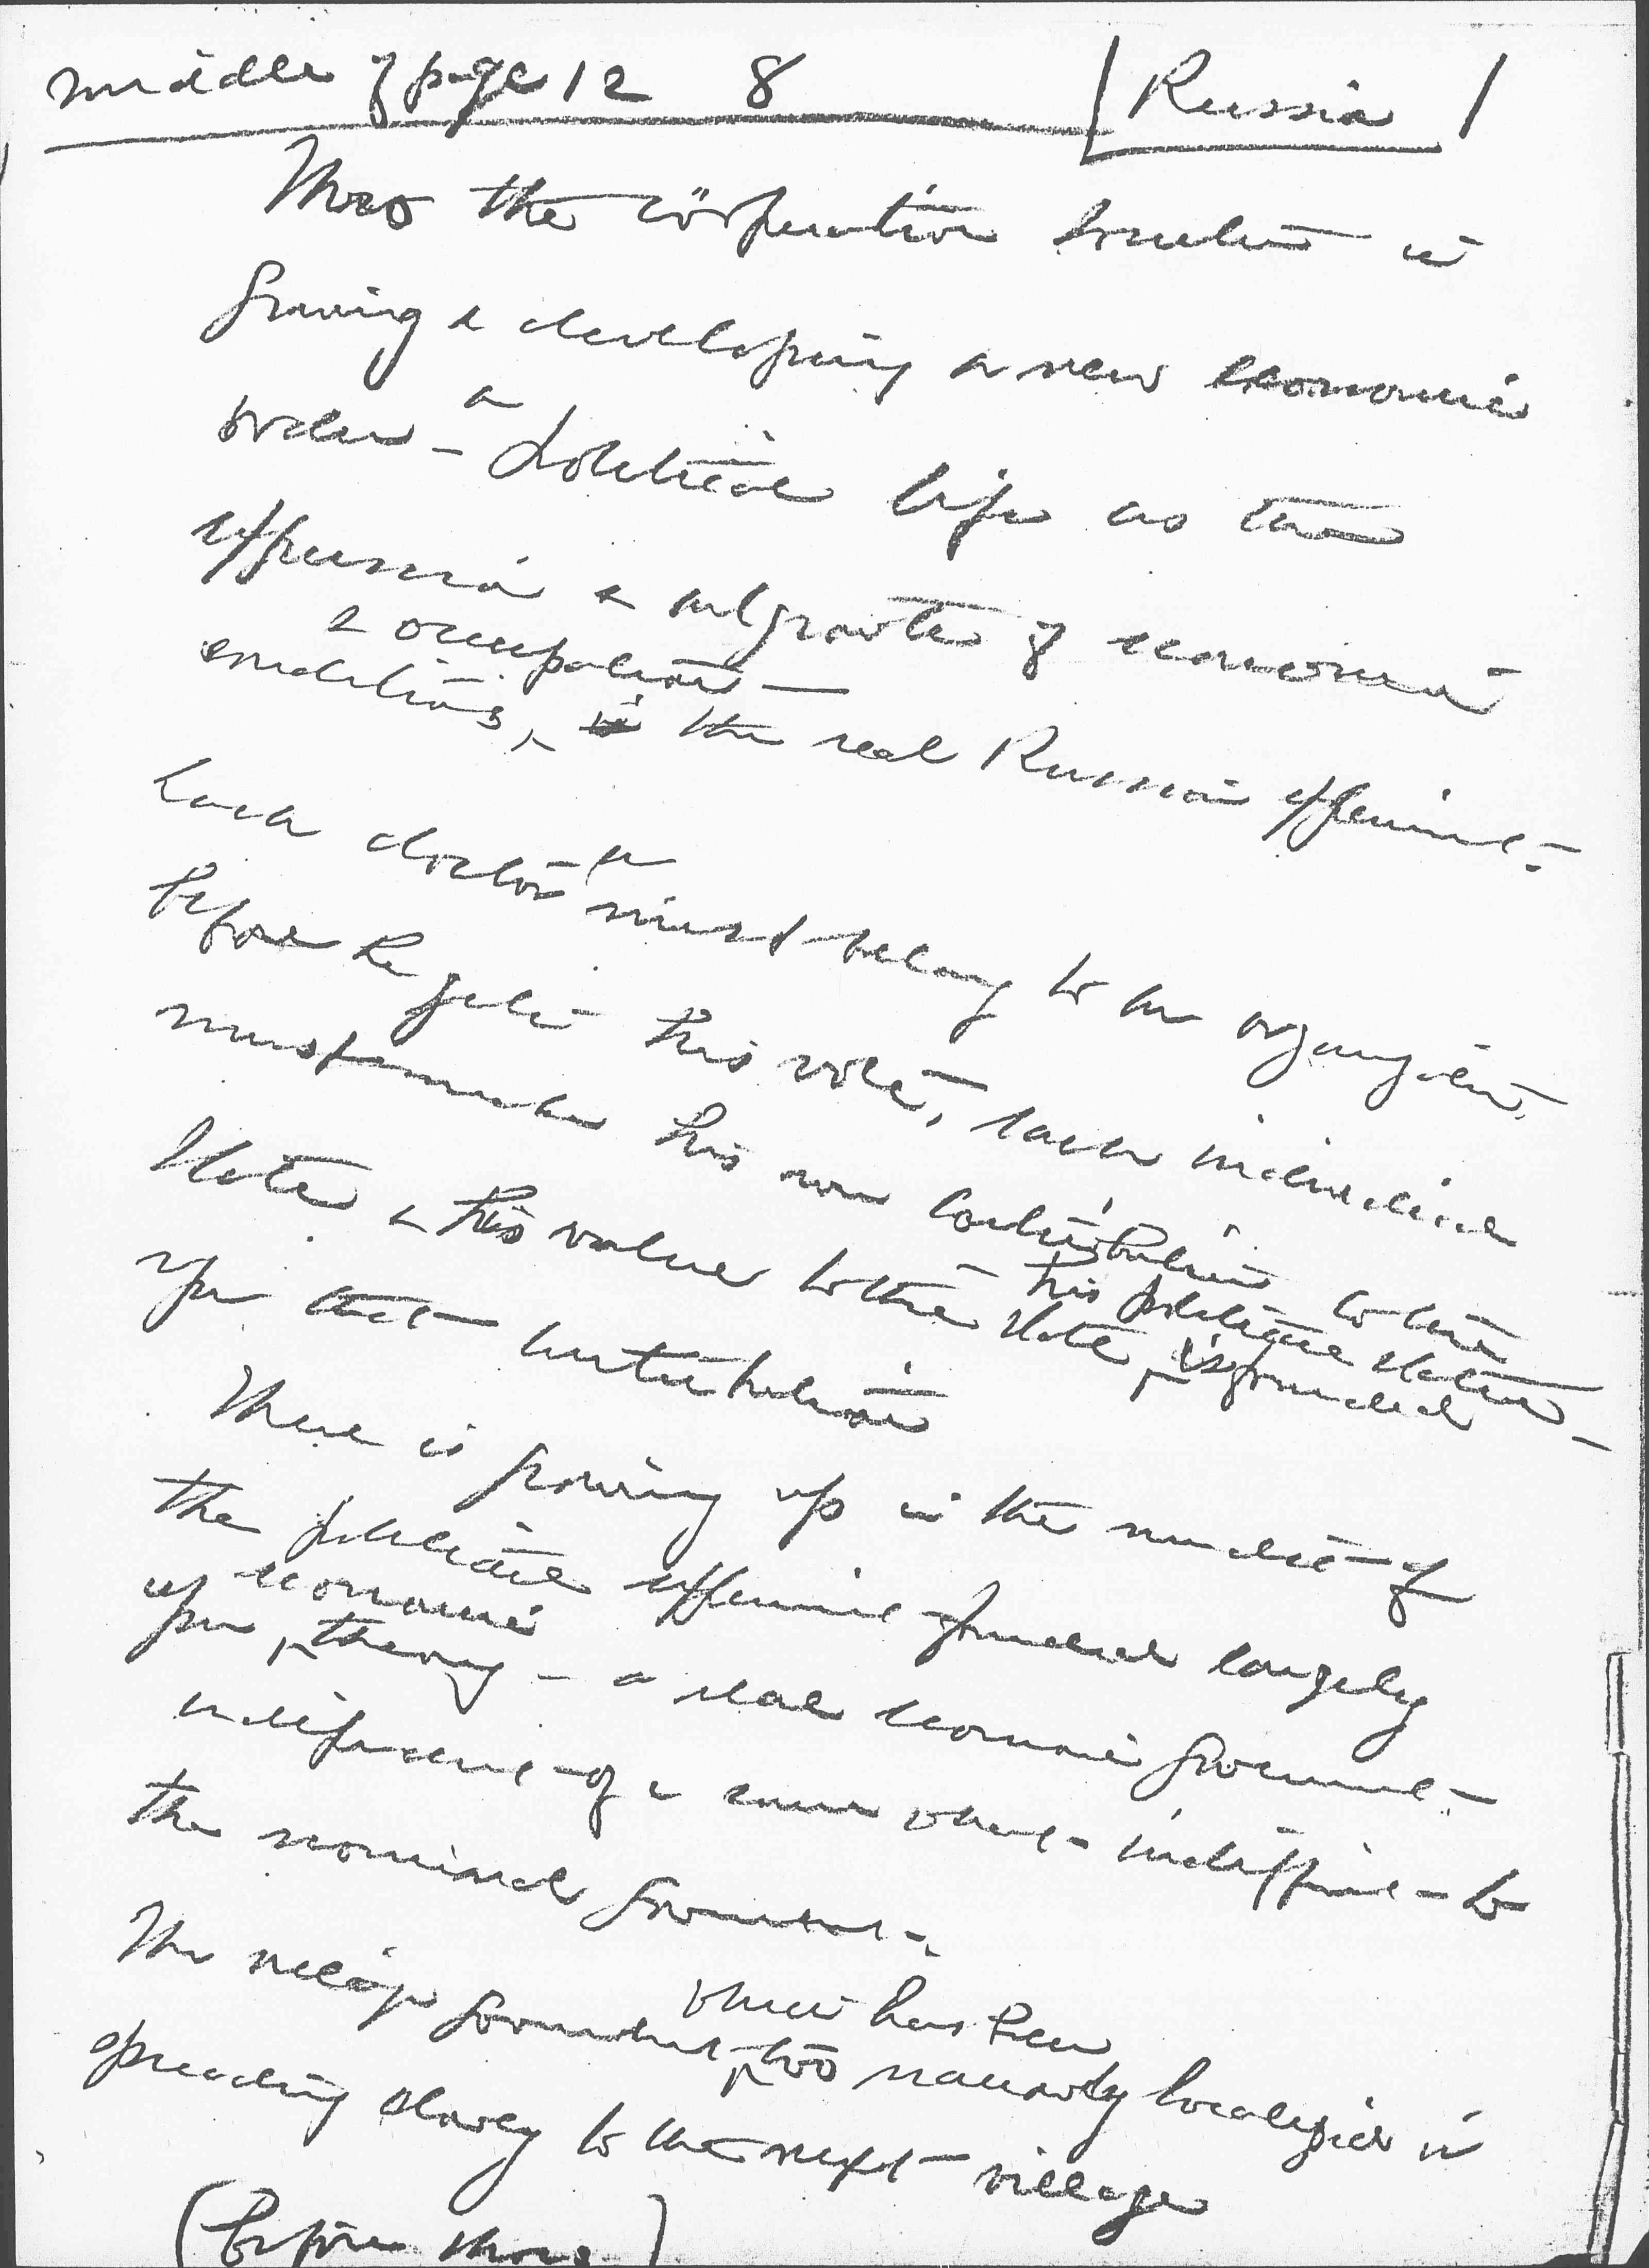 middle of page 12 8 | Russia |
Thro the cöoperative societies is
growing & developing a new economic
order - a political life as the
expression & outgrowth of economic
conditions, & occupations — the real Russian experiment -
Each doctor must belong to an organization
before he gets his vote, each individual
must make his own contribution to the
State & his value to the State, his political status is founded
upon that contribution
There is growing up in the midst of
the political experiment founded largely
upon economic theory - a real economic government -
independent of & somewhat indifferent to
the nominal government.
The village government, which has been too narrowly localized is
spreading slowly to the next village
(before